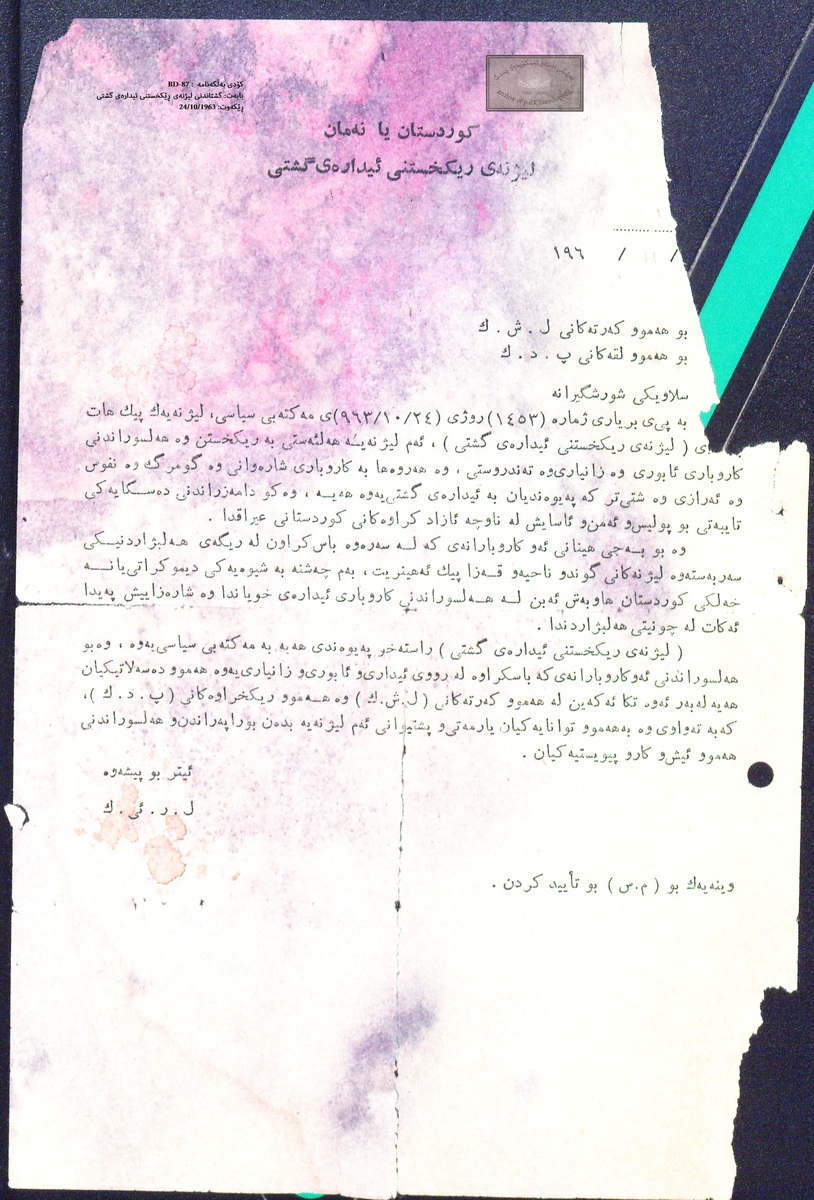 کۆدی بەڵگەنامە : BD-87
بابەت: گشتاندنی لیژنەی ڕێکخستنی ئیدارەی گشتی
ڕێکەوت: 24/10/1963
کوردستان یا نەمان
لیژنەی ریکخستنی ئیدارەی گشتی
/ / ١٩٦
بو هەموو کەرتەکانی ل . ش . ك
بو هەموو لقەکانی پ . د . ك
سلاویکی شورشگیرانە
بە پی‌ی بریاری ژمارە (١٤٥٣) روژی (٩٦٣/١٠/٢٤)ی مەکتەبی سیاسی، لیژنەیەك پیك هات
( لیژنەی ریکخستنی ئیدارەی گشتی ) ، ئەم لیژنەیـە هەلئەستی بە ریکخستن وە هەلسوراندنی
کاروباری ئابوری وە زانیاری‌وە تەندروستی ، وە هەروەها بە کاروباری شارەوانی وە گومرگ وە نفوس
وە ئەرازی وە شتی‌تر کە پەیوەندیان بە ئیدارەی گشتی‌یەوە هەیـە ، وەکو دامەزراندنی دەسـگایەکی
تایبەتی بو پولیس‌و ئەمن‌و ئاسایش لە ناوچە ئازاد کراوەکانی کوردستانی عیراقدا .
وە بو بـەجی هینانی ئەو کاروبارانەی کە لـە سەرەوە باس‌کراون لە ریگەی هـەلبژاردنیـکی
سەربەستەوە لیژنەکانی گوندو ناحیەو قـەزا پیك ئەهینریت ، بەم چەشنە بە شیوەیەکی دیموکراتی‌یانـە
خەلکی کوردستان هاوبەش ئەبن لـە هـەلسوراندنی کاروباری ئیدارەی خویاندا وە شارەزاییش پەیدا
ئەکات لە چونیتی هەلبژاردندا .
( لیژنەی ریکخستنی ئیدارەی گشتی ) راستەخو پەیوەندی هەیە بە مەکتەبی سیاسی‌یەوە ، وەبو
هەلسوراندنی ئەوکاروبارانەی‌کە باسکراوە لە رووی ئیداری‌و ئابوری‌و زانیاری‌یەوە هەموو دەسەلاتیکیان
هەیە لەبەر ئەوە تکا ئەکەین لە هەموو کەرتەکانی ( ل.ش.ك ) وە هـەمـوو ریکخراوەکانی ( پ . د . ك )،
کەبە تەواوی وە بەهەموو توانایەکیان یارمەتی‌و پشتیوانی ئەم لیژنەیە بدەن بوراپەراندن‌و هەلسوراندنی
هەموو ئیش‌و کارو پیویستیەکیان .
ئیتر بو پیشەوە
ل . ر . ئی . ك
وینەیەك بو ( م.س ) بو تأیید کردن .